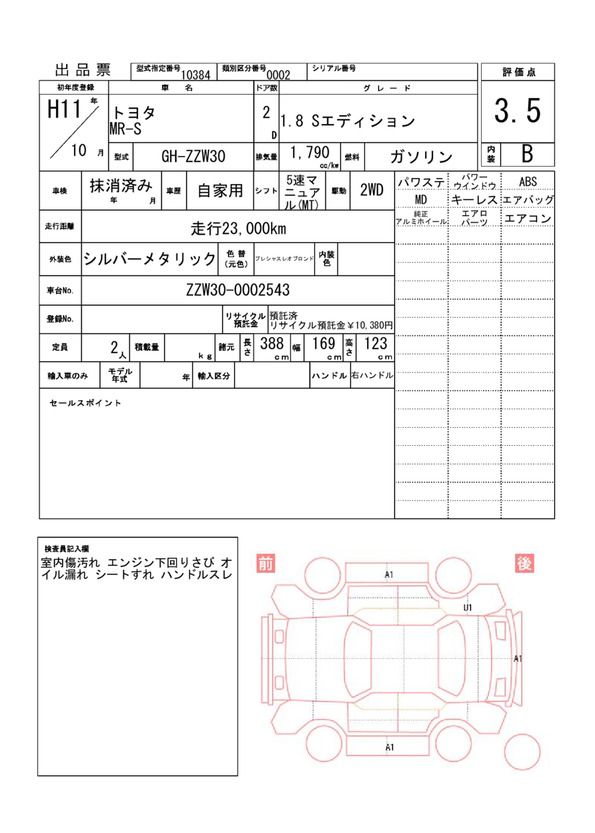 出品票 型式指定番号 10384 類別区分番号 0002 シリアル番号 評価点
初年度登録 車名 ドア数 グレード 3.5
H11年 トヨタ 2D 1.8 Sエディション
MR-S
10月 型式 GH-ZZW30 排気量 1,790 cc/kw 燃料 ガソリン 内装 B
車検 抹消済み 年 月 車歴 自家用 シフト 5速マニュアル(MT) 駆動 2WD パワステ パワーウインドウ ABS
MD キーレス エアバッグ
純正アルミホイール エアロパーツ エアコン
走行距離 走行23,000km
外装色 シルバーメタリック 色替(元色) プレシャスレオブロンド 内装色
車台No. ZZW30-0002543
登録No. リサイクル預託金 預託済
リサイクル預託金¥10,380円
定員 2人 積載量 kg 諸元 長さ 388cm 幅 169cm 高さ 123cm
輸入車のみ モデル年式 年 輸入区分 ハンドル 右ハンドル
セールスポイント
検査員記入欄
室内傷汚れ エンジン下回りさび オ
イル漏れ シートすれ ハンドルスレ
前 後
A1
U1
A1
A1